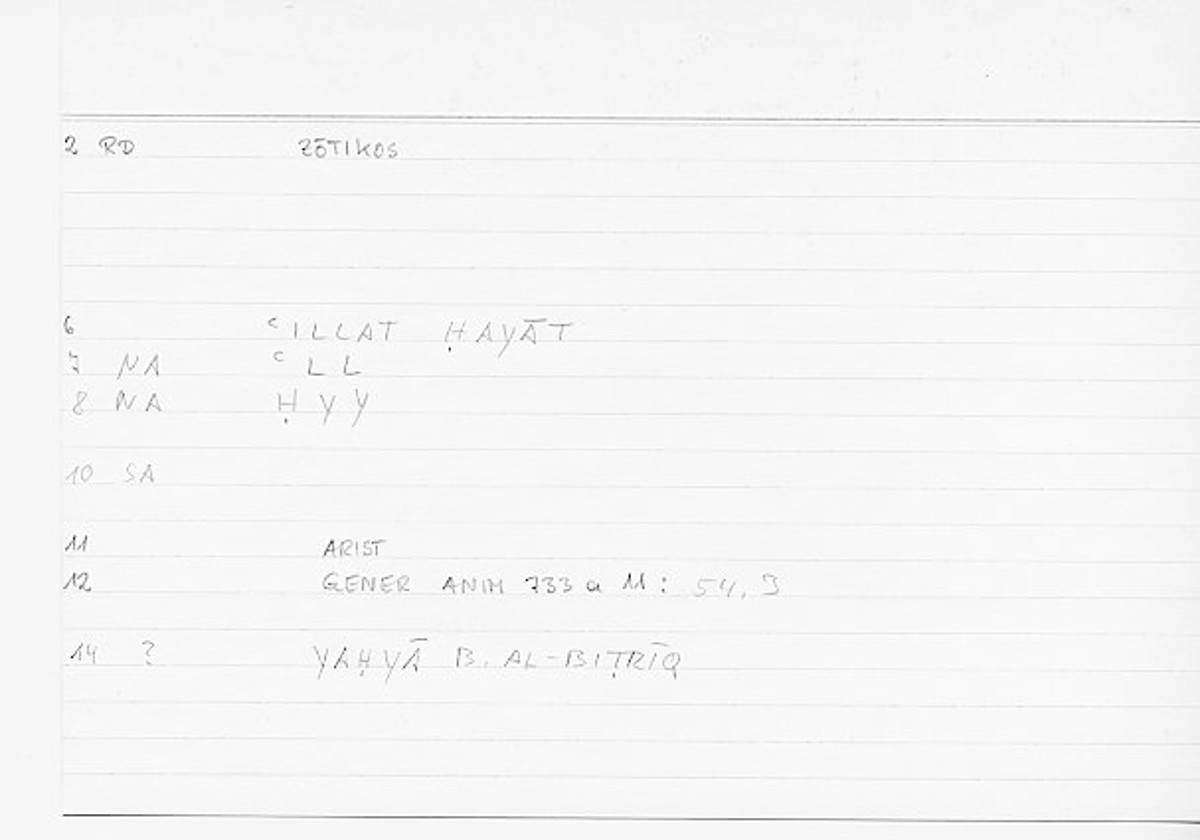 2 RD ZŌTIKOS
6 ʿILLAT ḤAYĀT
7 NA ʿLL
8 NA ḤYY
10 SA
11 ARIST
12 GENER ANIM 733 a 11 : 54, 9
14 ? YAḤYĀ B. AL-BIṬRĪQ